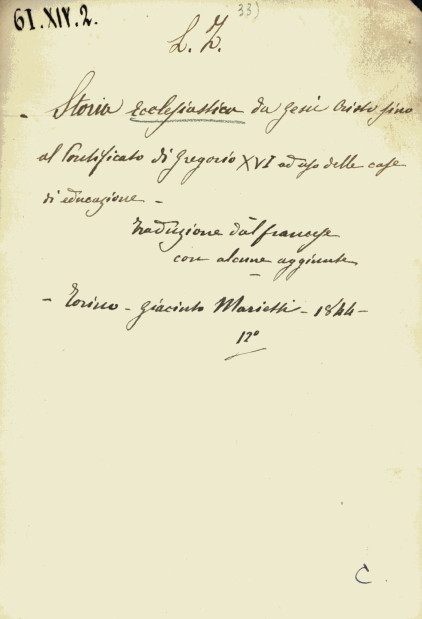 61.XIV.2.
33)
L. Z.
Storia Ecclesiastica da Gesù Cristo sino
al Pontificato di Gregorio XVI ad uso delle case
di educazione -
traduzione dal francese
con alcune aggiunte
- Torino - Giacinto Marietti - 1844 -
12°
C